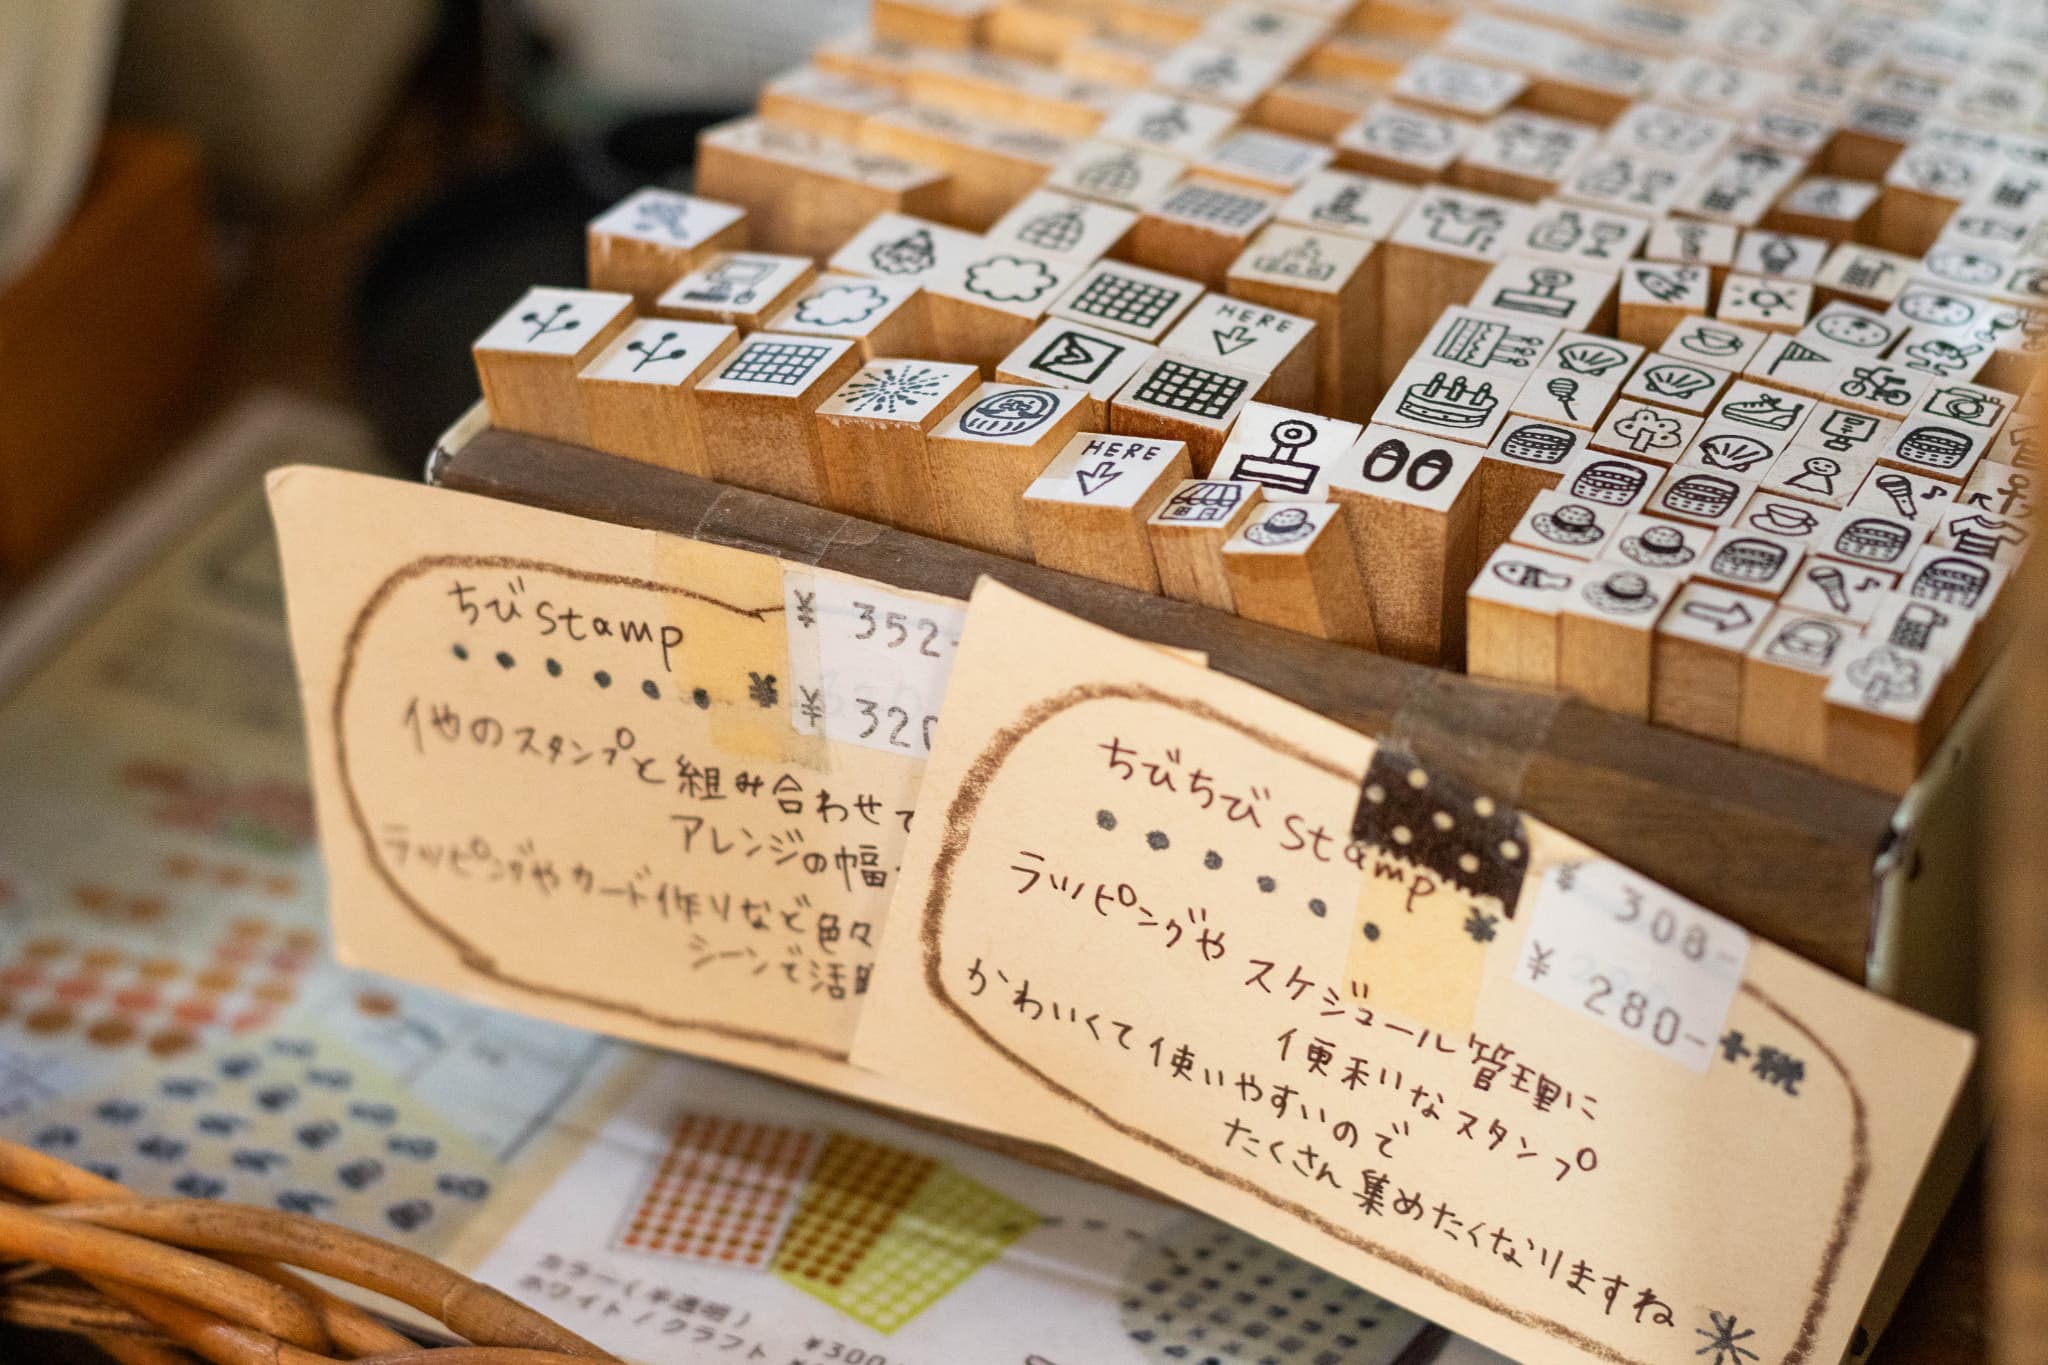 HERE
HERE
ちびstamp
¥352-
¥320
他のスタンプと組み合わせて
アレンジの幅
ラッピングやカード作りなど色々
シーンで活
ちびちびstamp
¥308-
¥280-
+税
ラッピングやスケジュール管理に
便利なスタンプ
かわいくて使いやすいので
たくさん集めたくなりますね
カラー(半透明)
ホワイト/クラフト
¥300